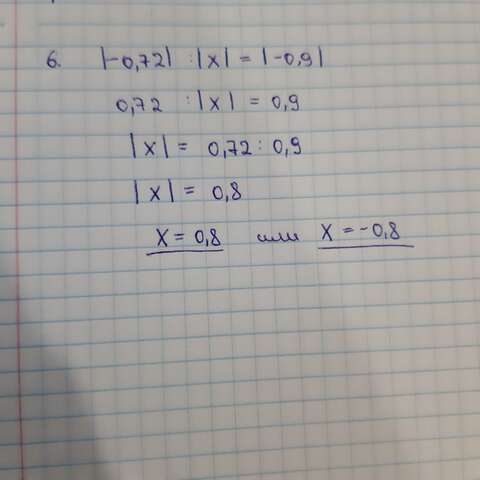 6. |-0,72| : |x| = |-0,9|
0,72 : |x| = 0,9
|x| = 0,72 : 0,9
|x| = 0,8
x = 0,8 или x = -0,8